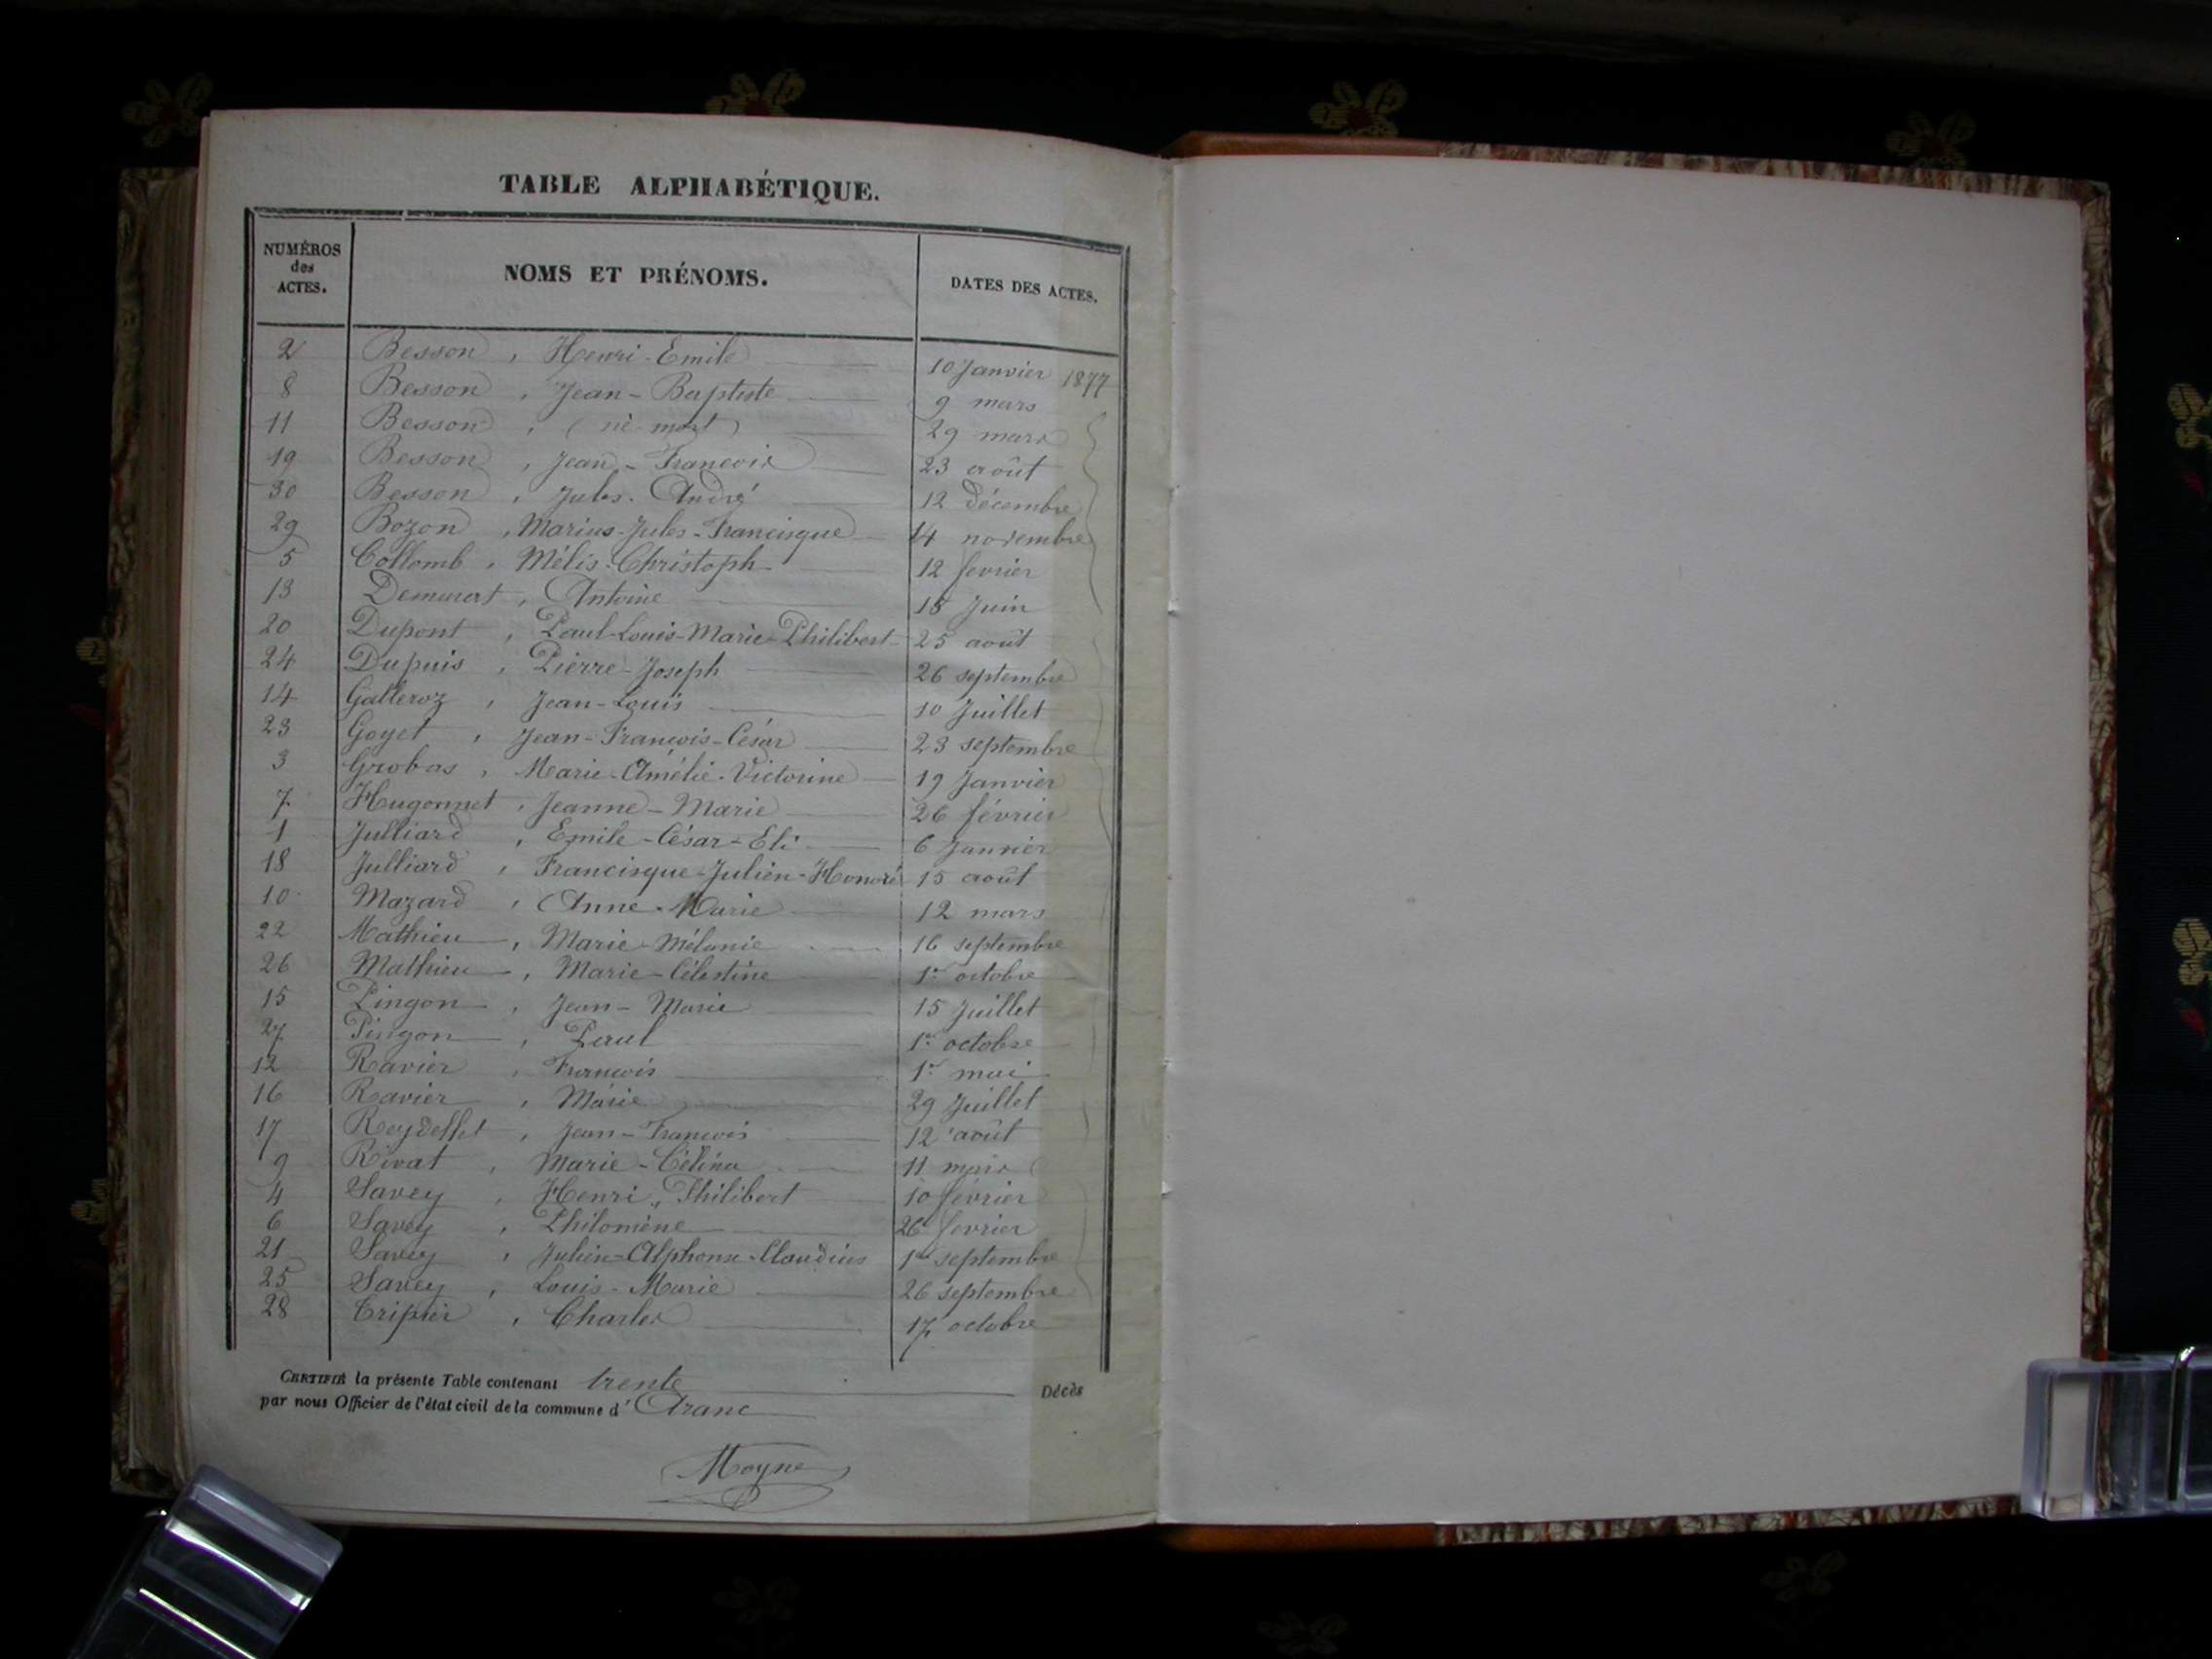 TABLE ALPHABÉTIQUE.
NUMÉROS des ACTES. NOMS ET PRÉNOMS. DATES DES ACTES.
2 Besson, Henri-Emile 10 Janvier 1877
8 Besson, Jean-Baptiste 9 mars
11 Besson, (né mort) 29 mars
19 Besson, Jean-François 23 août
30 Besson, Jules-André 12 décembre
29 Bozon, Marius-Jules-Francisque 14 novembre
5 Collomb, Mélis-Christoph 12 fevrier
13 Demurert, Antoine 18 Juin
20 Dupont, Paul-Louis-Marie-Philibert 25 août
24 Dupuis, Pierre-Joseph 26 septembre
14 Galleroz, Jean-Louis 10 Juillet
23 Goyet, Jean-François-César 23 septembre
3 Grobas, Marie-Amélie-Victorine 19 Janvier
7 Hugonnet, Jeanne-Marie 26 février
1 Julliard, Emile-César-Eli 6 Janvier
18 Julliard, Francisque-Julien-Honoré 15 août
10 Mazard, Anne-Marie 12 mars
22 Mathieu, Marie-Mélanie 16 septembre
26 Mathieu, Marie-Célestine 1er octobre
15 Pingon, Jean-Marie 15 Juillet
27 Pingon, Paul 1er octobre
12 Ravier, François 1er mai
16 Ravier, Marie 29 Juillet
17 Reydellet, Jean-François 12 août
9 Rivat, Marie-Célina 11 mars
4 Savey, Henri, Philibert 10 février
6 Savey, Philomène 26 fevrier
21 Savey, Julien-Alphonse-Claudius 1er septembre
25 Savey, Louis-Marie 26 septembre
28 Tripier, Charles 17 octobre
CERTIFIÉ la présente Table contenant trente Décès
par nous Officier de l'état civil de la commune d'Aranc
Moyne